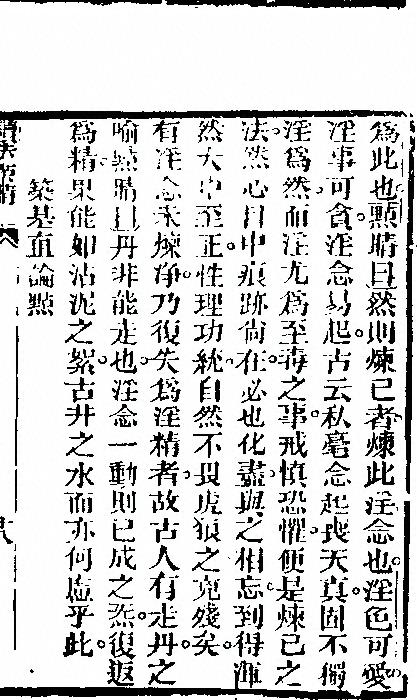 為此也點睛曰然則煉己者煉此淫念也淫色可愛
淫事可貪淫念易起古云私毫念起喪天真固不獨
淫為然而淫尤為至毒之事戒慎恐懼便是煉己之
法然心目中痕跡尚在必也化盡與之相忘到得渾
然大中至正性理功純自然不畏虎狼之兇殘矣
有淫念未煉净乃復失為淫精者故古人有走丹之
喻點睛曰丹非能走也淫念一動則已成之炁復返
為精果能如沾泥之絮古井之水而亦何慮乎此
築基直論點